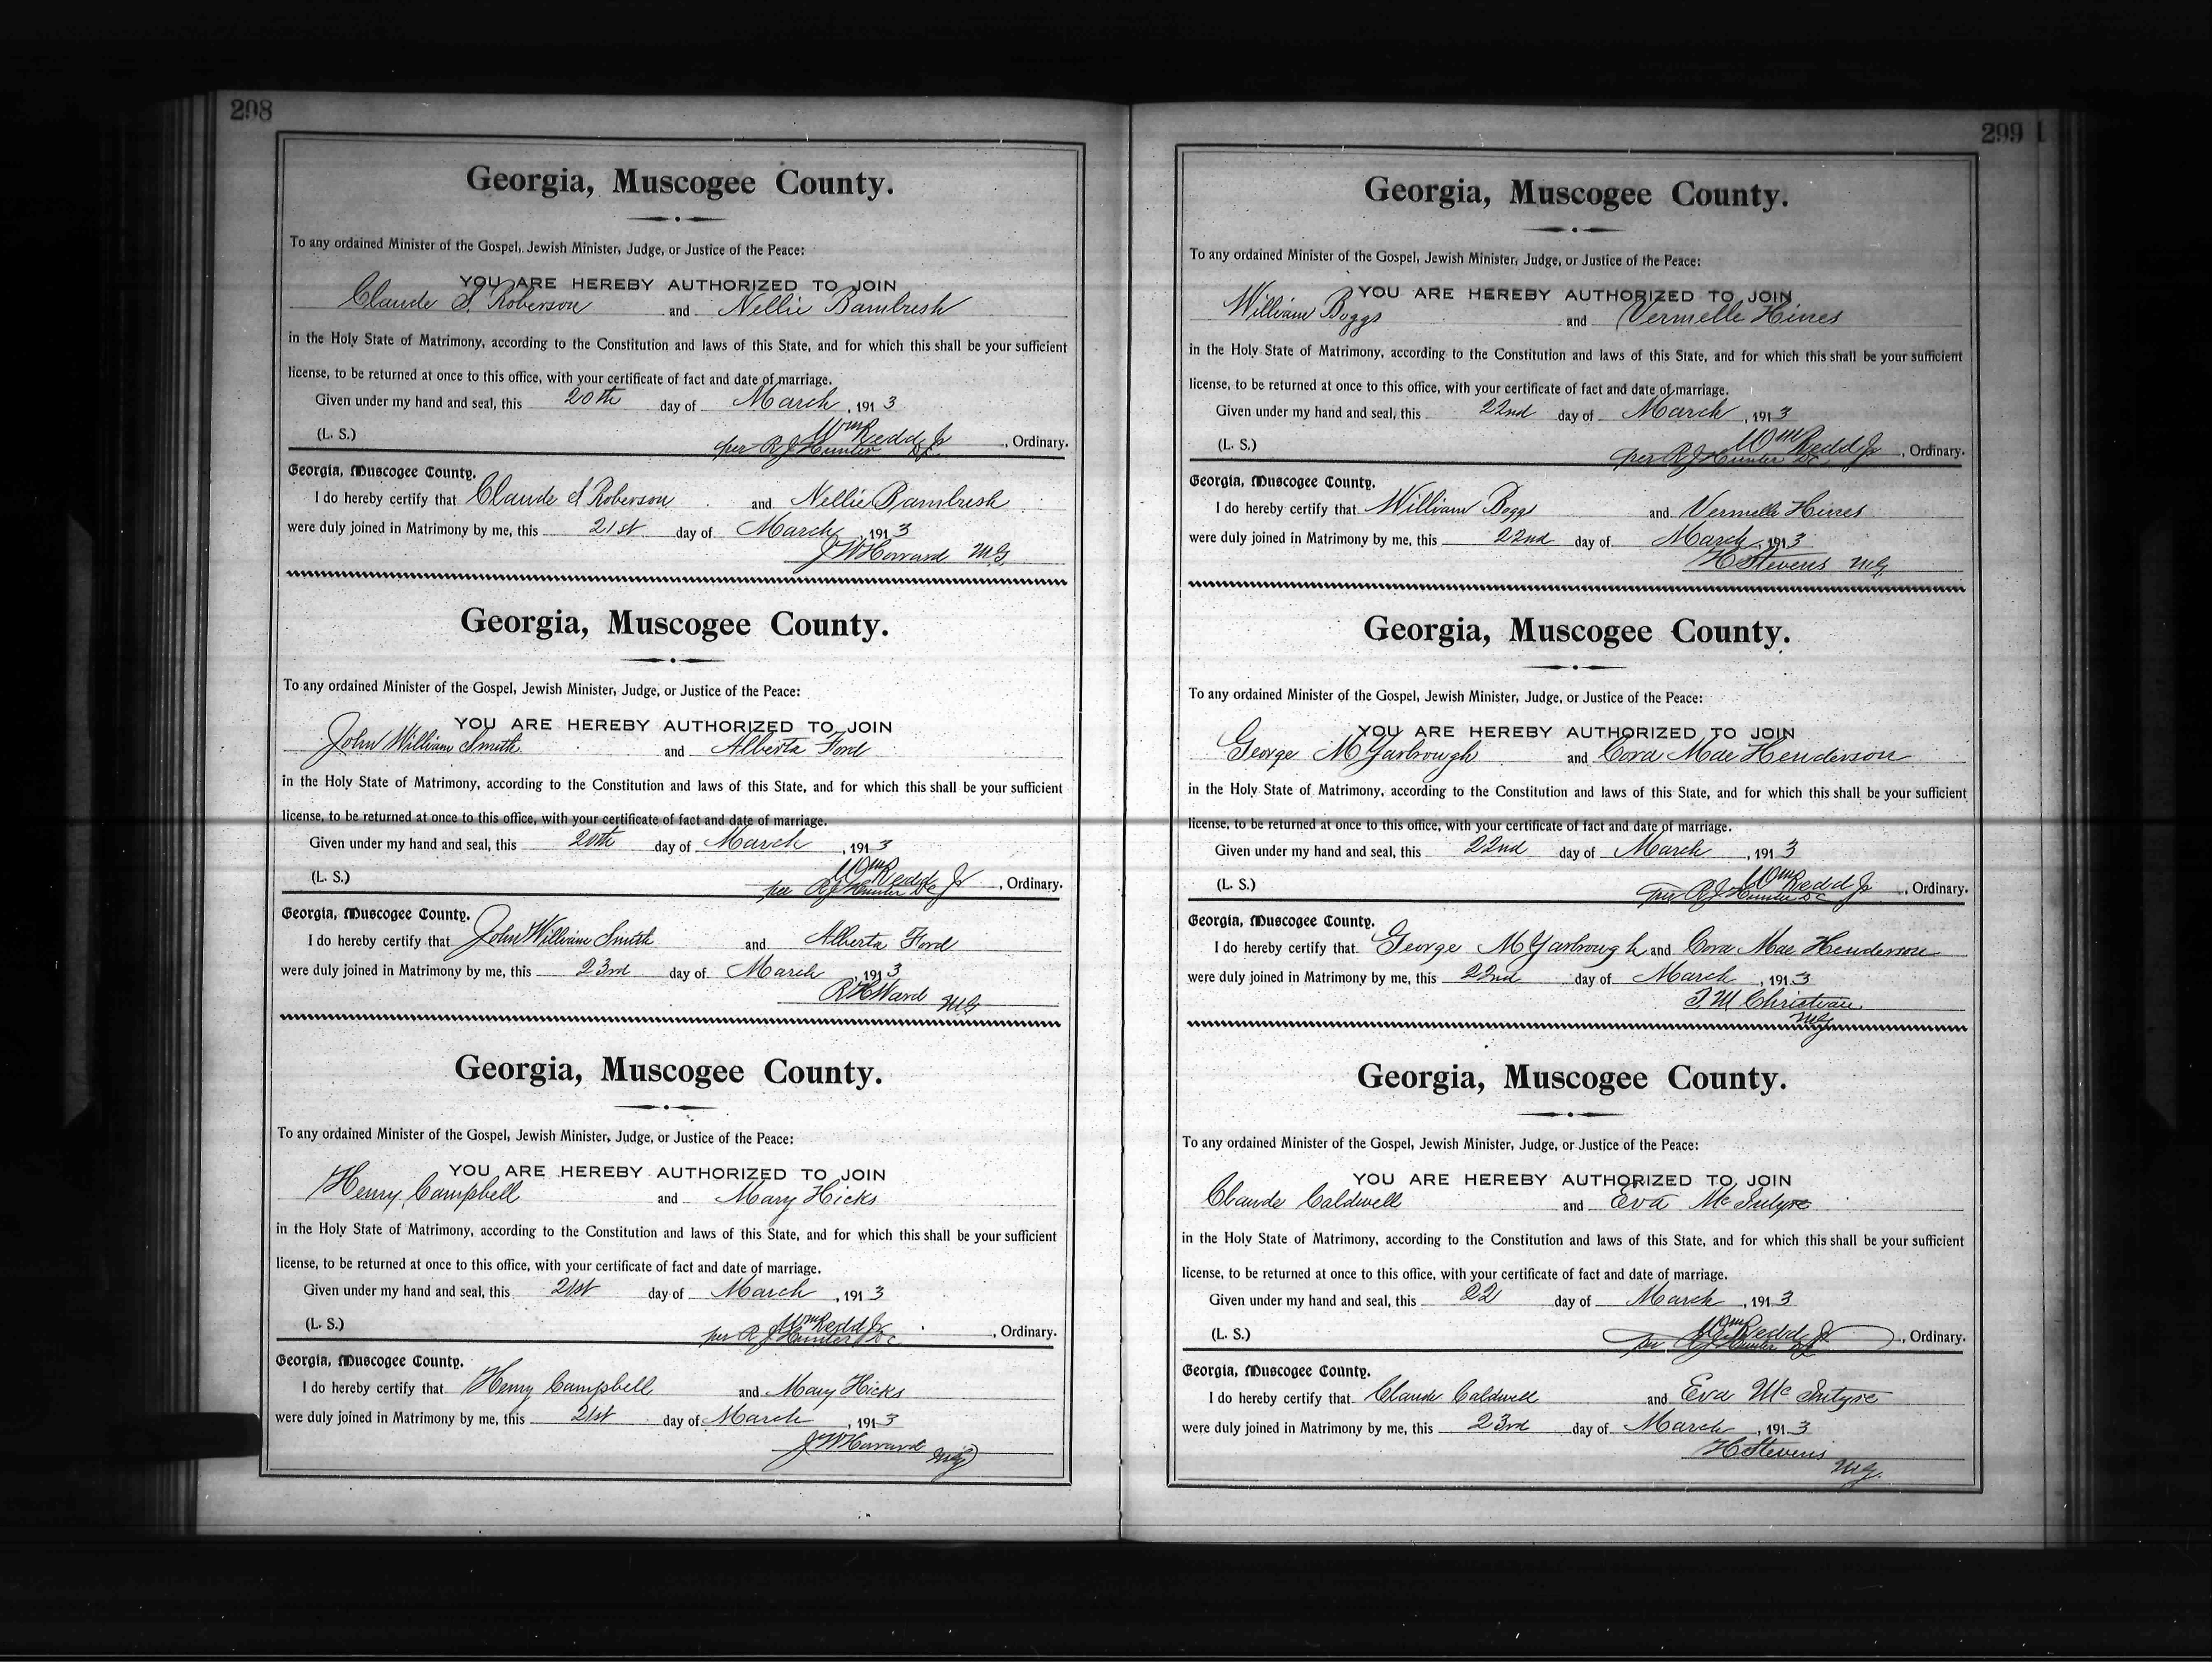 298
Georgia, Muscogee County.
To any ordained Minister of the Gospel, Jewish Minister, Judge, or Justice of the Peace:
YOU ARE HEREBY AUTHORIZED TO JOIN
Claude S. Roberson and Nellie Bambresh
in the Holy State of Matrimony, according to the Constitution and laws of this State, and for which this shall be your sufficient
license, to be returned at once to this office, with your certificate of fact and date of marriage.
Given under my hand and seal, this 20th day of March, 1913
(L. S.) Wm Redd Jr, Ordinary.
per R J Hunter DC
Georgia, Muscogee County.
I do hereby certify that Claude S Roberson and Nellie Bambresh
were duly joined in Matrimony by me, this 21st day of March, 1913
J W Howard M.G.
Georgia, Muscogee County.
To any ordained Minister of the Gospel, Jewish Minister, Judge, or Justice of the Peace:
YOU ARE HEREBY AUTHORIZED TO JOIN
John William Smith and Alberta Ford
in the Holy State of Matrimony, according to the Constitution and laws of this State, and for which this shall be your sufficient
license, to be returned at once to this office, with your certificate of fact and date of marriage.
Given under my hand and seal, this 20th day of March, 1913
(L. S.) Wm Redd Jr, Ordinary.
per R J Hunter DC
Georgia, Muscogee County.
I do hereby certify that John William Smith and Alberta Ford
were duly joined in Matrimony by me, this 23rd day of March, 1913
R H Ward MG
Georgia, Muscogee County.
To any ordained Minister of the Gospel, Jewish Minister, Judge, or Justice of the Peace:
YOU ARE HEREBY AUTHORIZED TO JOIN
Henry Campbell and Mary Hicks
in the Holy State of Matrimony, according to the Constitution and laws of this State, and for which this shall be your sufficient
license, to be returned at once to this office, with your certificate of fact and date of marriage.
Given under my hand and seal, this 21st day of March, 1913
(L. S.) Wm Redd Jr, Ordinary.
per R J Hunter DC
Georgia, Muscogee County.
I do hereby certify that Henry Campbell and Mary Hicks
were duly joined in Matrimony by me, this 21st day of March, 1913
J W Howard MG
299
Georgia, Muscogee County.
To any ordained Minister of the Gospel, Jewish Minister, Judge, or Justice of the Peace:
YOU ARE HEREBY AUTHORIZED TO JOIN
William Boggs and Vermelle Hines
in the Holy State of Matrimony, according to the Constitution and laws of this State, and for which this shall be your sufficient
license, to be returned at once to this office, with your certificate of fact and date of marriage.
Given under my hand and seal, this 22nd day of March, 1913
(L. S.) Wm Redd Jr, Ordinary.
per R J Hunter DC
Georgia, Muscogee County.
I do hereby certify that William Boggs and Vermelle Hines
were duly joined in Matrimony by me, this 22nd day of March, 1913
H Stevens MG
Georgia, Muscogee County.
To any ordained Minister of the Gospel, Jewish Minister, Judge, or Justice of the Peace:
YOU ARE HEREBY AUTHORIZED TO JOIN
George M Yarbrough and Cora Mae Henderson
in the Holy State of Matrimony, according to the Constitution and laws of this State, and for which this shall be your sufficient
license, to be returned at once to this office, with your certificate of fact and date of marriage.
Given under my hand and seal, this 22nd day of March, 1913
(L. S.) Wm Redd Jr, Ordinary.
per R J Hunter DC
Georgia, Muscogee County.
I do hereby certify that George M Yarbrough and Cora Mae Henderson
were duly joined in Matrimony by me, this 22nd day of March, 1913
T. M Christian
MG
Georgia, Muscogee County.
To any ordained Minister of the Gospel, Jewish Minister, Judge, or Justice of the Peace:
YOU ARE HEREBY AUTHORIZED TO JOIN
Claude Caldwell and Eva McIntyre
in the Holy State of Matrimony, according to the Constitution and laws of this State, and for which this shall be your sufficient
license, to be returned at once to this office, with your certificate of fact and date of marriage.
Given under my hand and seal, this 22 day of March, 1913
(L. S.) Wm Redd Jr, Ordinary.
per R J Hunter DC
Georgia, Muscogee County.
I do hereby certify that Claude Caldwell and Eva McIntyre
were duly joined in Matrimony by me, this 23rd day of March, 1913
H Stevens
MG.